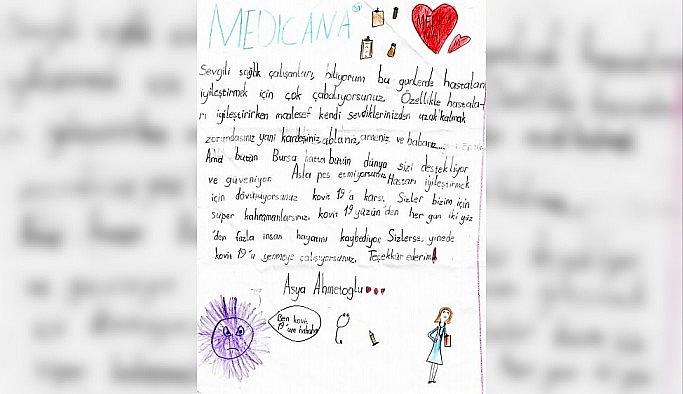 MEDICANA
Sevgili sağlık çalışanları, biliyorum bu günlerde hastaları
iyileştirmek için çok çabalıyorsunuz. Özellikle hastala-
rı iyileştirirken malesef kendi sevdiklerinizden uzak kalmak
zorundasınız yani kardeşiniz, ablanız, anneniz ve babanız....
Ama bütün Bursa hatta bütün dünya sizi destekliyor
ve güveniyor. Asla pes etmiyorsunuz Hastaları iyileştirmek
için dövüşüyorsunuz kovit 19'a karşı. Sizler bizim için
süper kahramanlarsınız. kovit 19 yüzün'den her gün iki yüz
'den fazla insan hayatını kaybediyor. Sizlerse, yinede
kovit 19'u yenmeye çalışıyorsunuz. Teşekkür ederim!
Asya Ahmetoğlu
Ben kovit
19'um hahaha